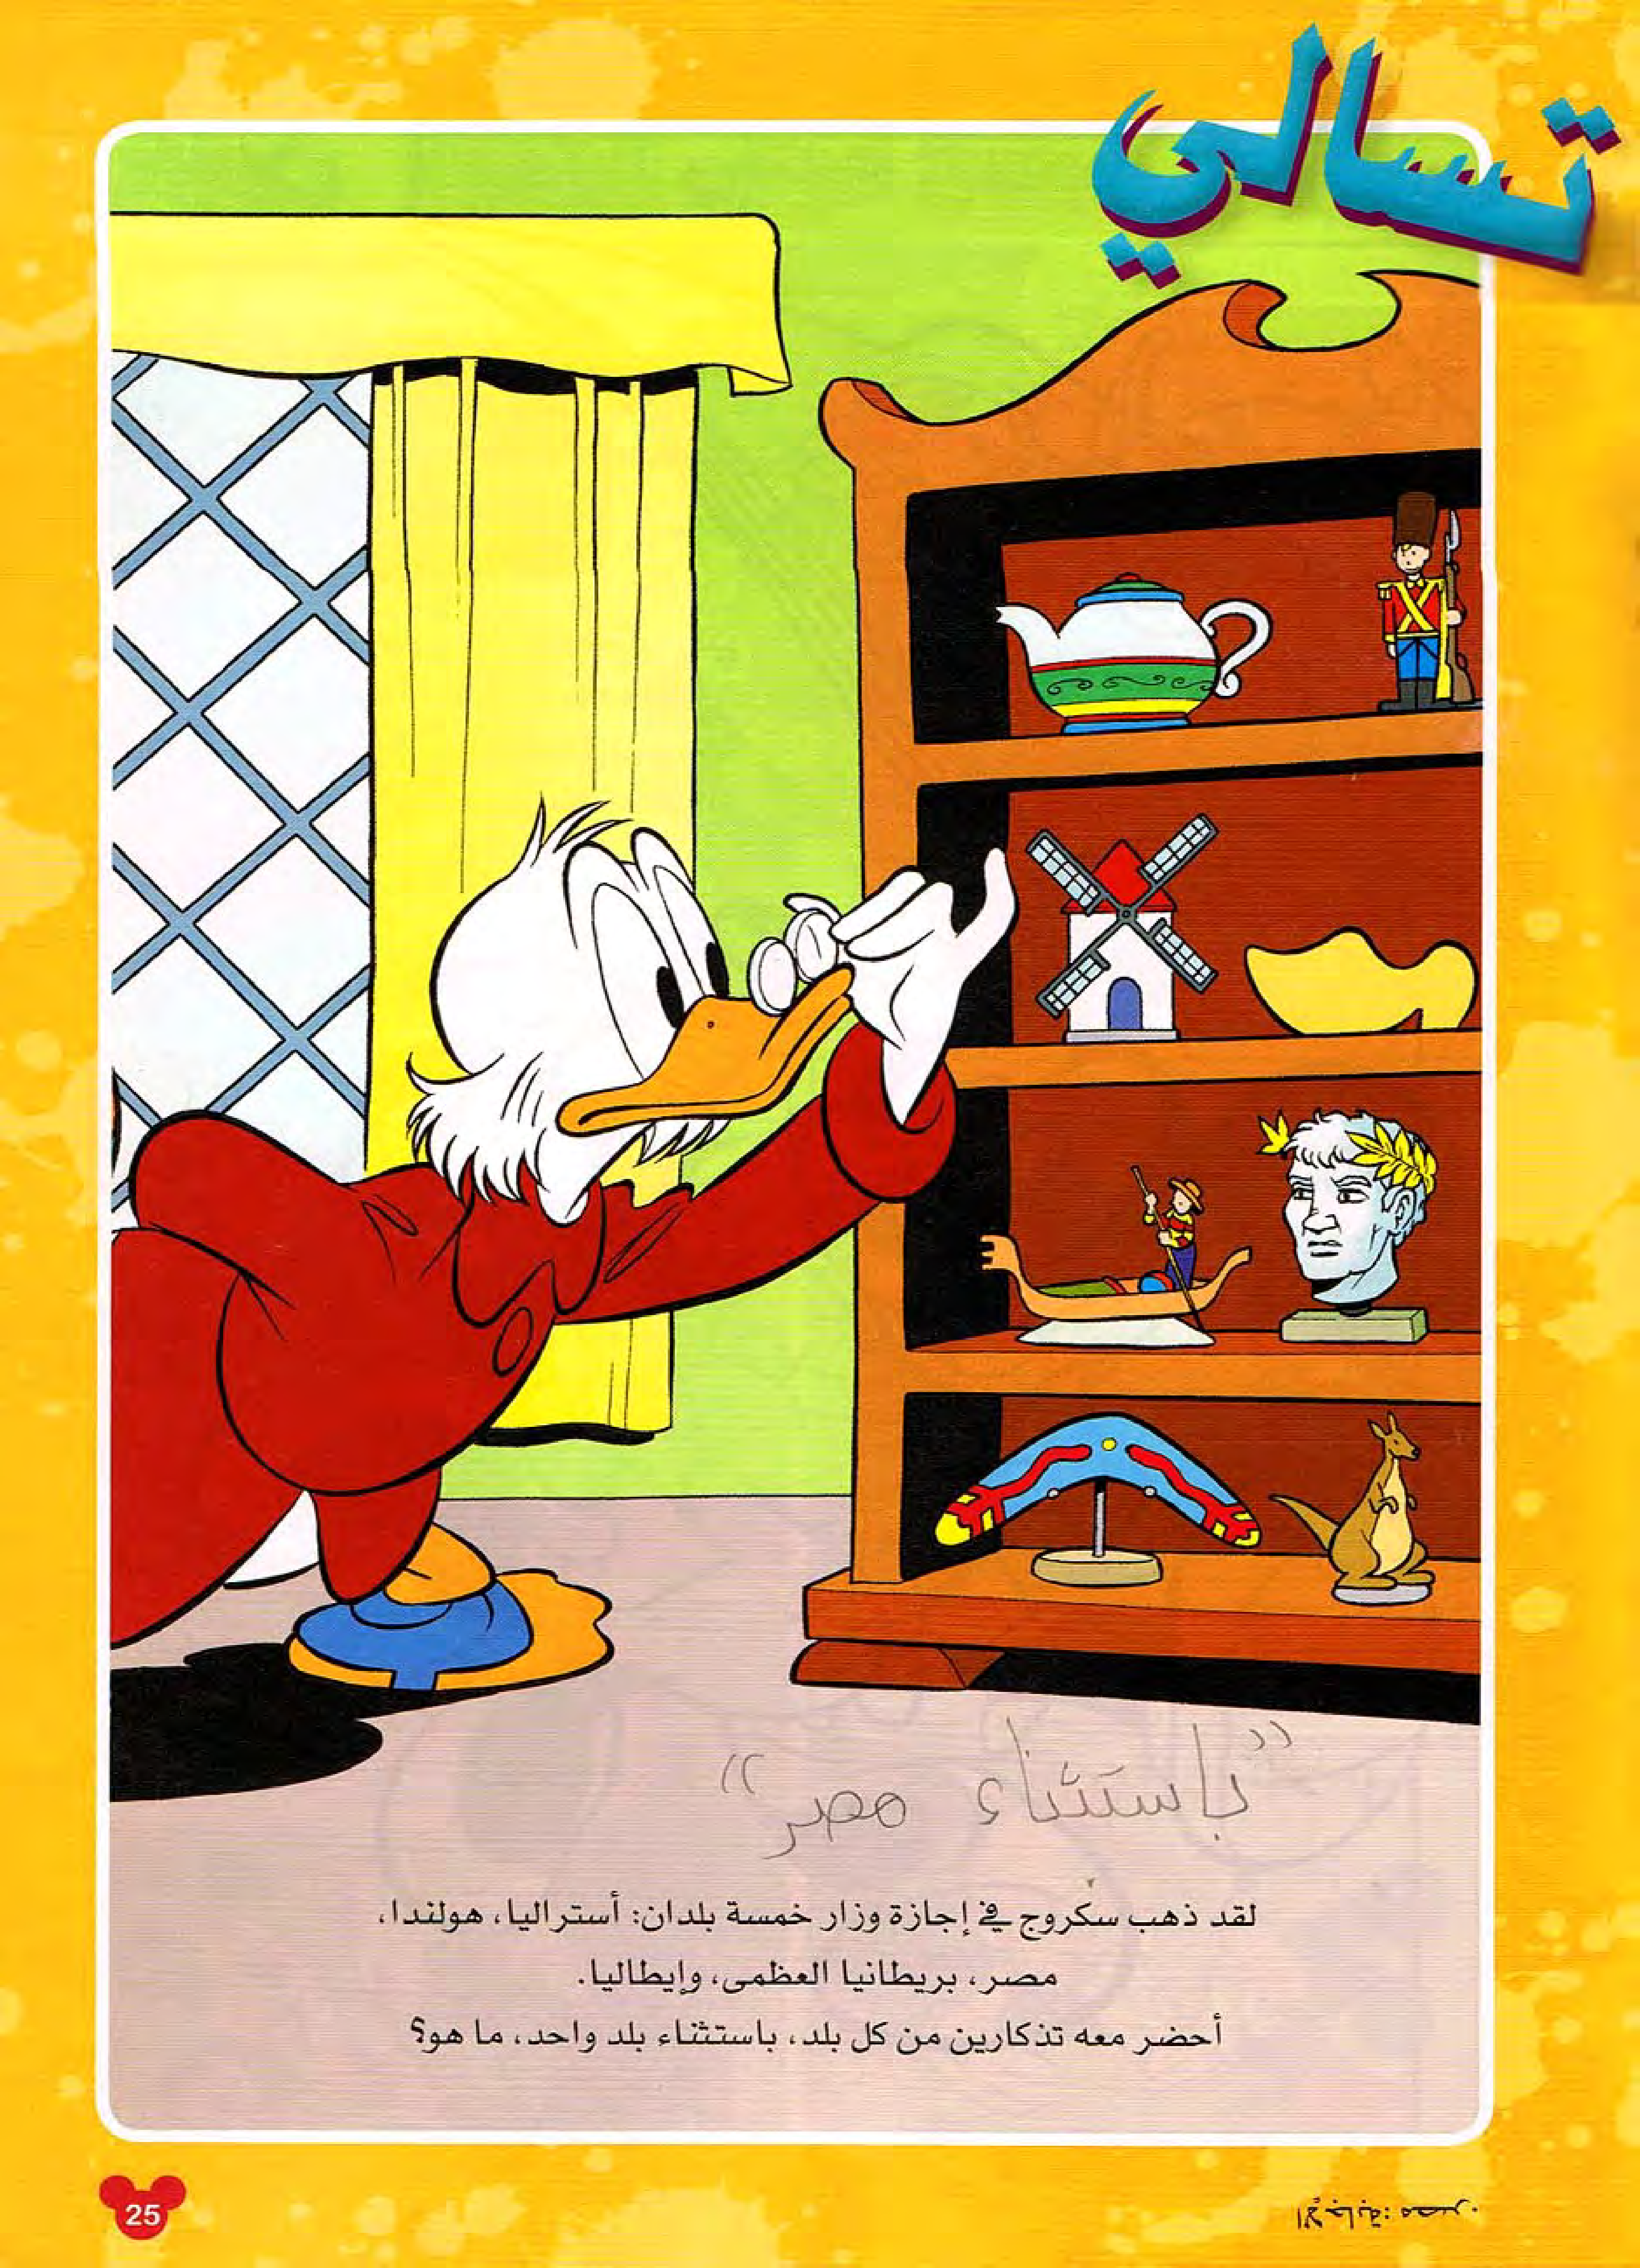 تسالي
"باستثناء مصر"
لقد ذهب سكروج في إجازة وزار خمسة بلدان: أستراليا، هولندا،
مصر، بريطانيا العظمى، وإيطاليا.
أحضر معه تذكارين من كل بلد، باستثناء بلد واحد، ما هو؟
الإجابة: مصر.
25